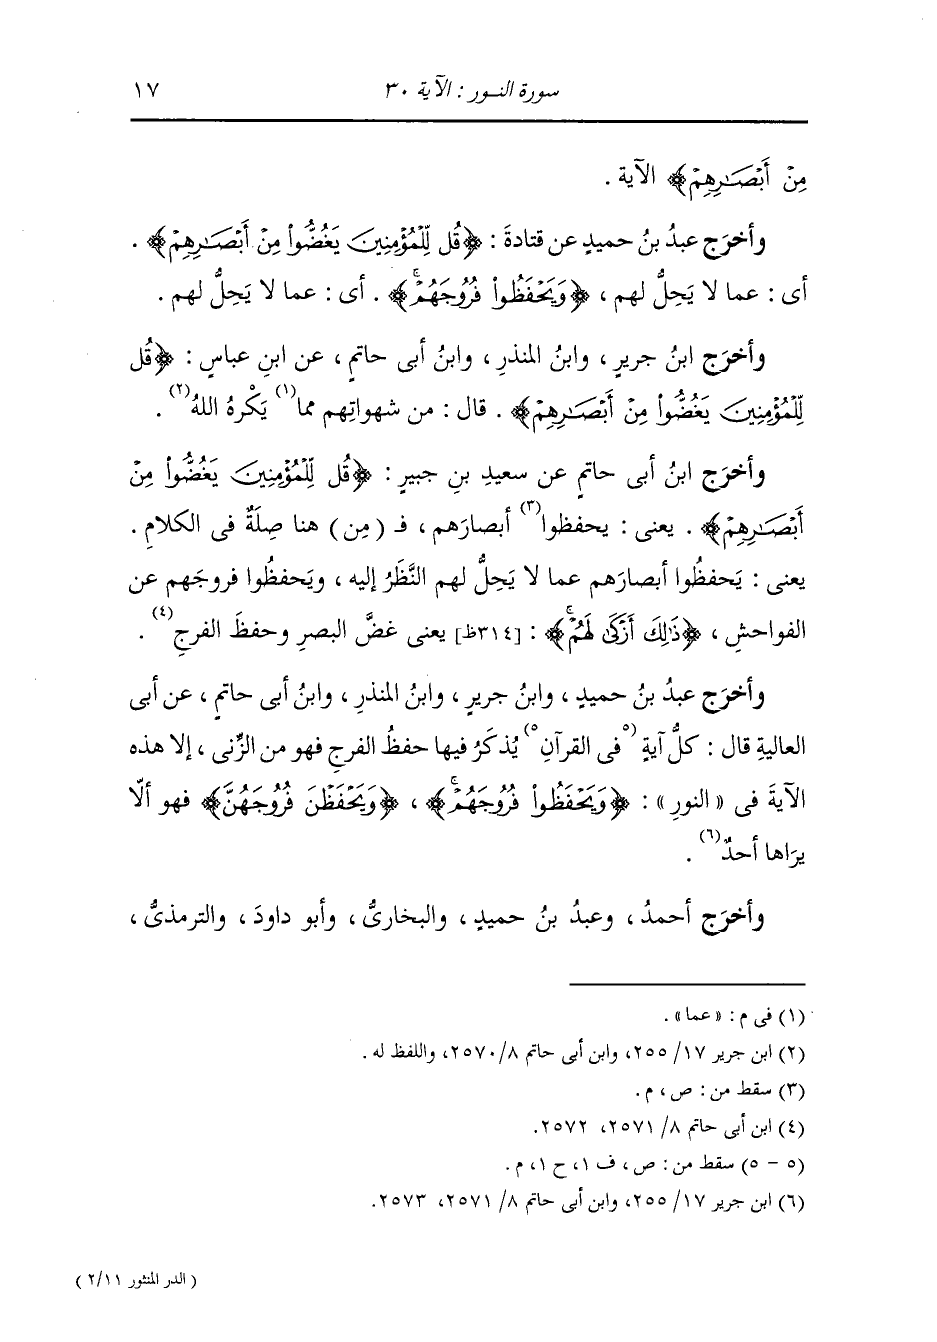 سورة النور : الآية ٣٠ ١٧
مِنْ أَبْصَـٰرِهِمْ﴾ الآية .
وأخرَج عبدُ بنُ حميدٍ عن قتادةَ : ﴿قُل لِّلْمُؤْمِنِينَ يَغُضُّواْ مِنْ أَبْصَـٰرِهِمْ﴾ .
أى : عما لا يَحِلُّ لهم ، ﴿وَيَحْفَظُواْ فُرُوجَهُمْۚ﴾ . أى : عما لا يَحِلُّ لهم .
وأخرَج ابنُ جريرٍ ، وابنُ المنذرِ ، وابنُ أبى حاتمٍ ، عن ابنِ عباسٍ : ﴿قُل
لِّلْمُؤْمِنِينَ يَغُضُّواْ مِنْ أَبْصَـٰرِهِمْ﴾ . قال : من شهواتِهم مما(١) يَكْرهُ اللهُ(٢) .
وأخرَج ابنُ أبى حاتمٍ عن سعيدِ بنِ جبيرٍ : ﴿قُل لِّلْمُؤْمِنِينَ يَغُضُّواْ مِنْ
أَبْصَـٰرِهِمْ﴾ . يعنى : يحفظوا(٣) أبصارَهم ، فـ ( مِن ) هنا صِلَةٌ فى الكلامِ .
يعنى : يَحفظُوا أبصارَهم عما لا يَحِلُّ لهم النَّظَرُ إليه ، ويَحفظُوا فروجَهم عن
الفواحشِ ، ﴿ذَٰلِكَ أَزْكَىٰ لَهُمْۚ﴾ : [٣١٤ظ] يعنى غضَّ البصرِ وحفظَ الفرجِ(٤) .
وأخرَج عبدُ بنُ حميدٍ ، وابنُ جريرٍ ، وابنُ المنذرِ ، وابنُ أبى حاتمٍ ، عن أبى
العاليةِ قال : كلُّ آيةٍ (٥فى القرآنِ٥) يُذكَرُ فيها حفظُ الفرجِ فهو من الزِّنى ، إلا هذه
الآيةَ فى « النورِ » : ﴿وَيَحْفَظُواْ فُرُوجَهُمْۚ﴾ ، ﴿وَيَحْفَظْنَ فُرُوجَهُنَّ﴾ فهو ألّا
يرَاها أحدٌ(٦) .
وأخرَج أحمدُ ، وعبدُ بنُ حميدٍ ، والبخارىُّ ، وأبو داودَ ، والترمذىُّ ،
(١) فى م : « عما » .
(٢) ابن جرير ١٧/ ٢٥٥، وابن أبى حاتم ٨/ ٢٥٧٠، واللفظ له .
(٣) سقط من : ص ، م .
(٤) ابن أبى حاتم ٨/ ٢٥٧١، ٢٥٧٢.
(٥ - ٥) سقط من : ص ، ف ١، ح ١، م .
(٦) ابن جرير ١٧/ ٢٥٥، وابن أبى حاتم ٨/ ٢٥٧١، ٢٥٧٣.
( الدر المنثور ٢/١١ )